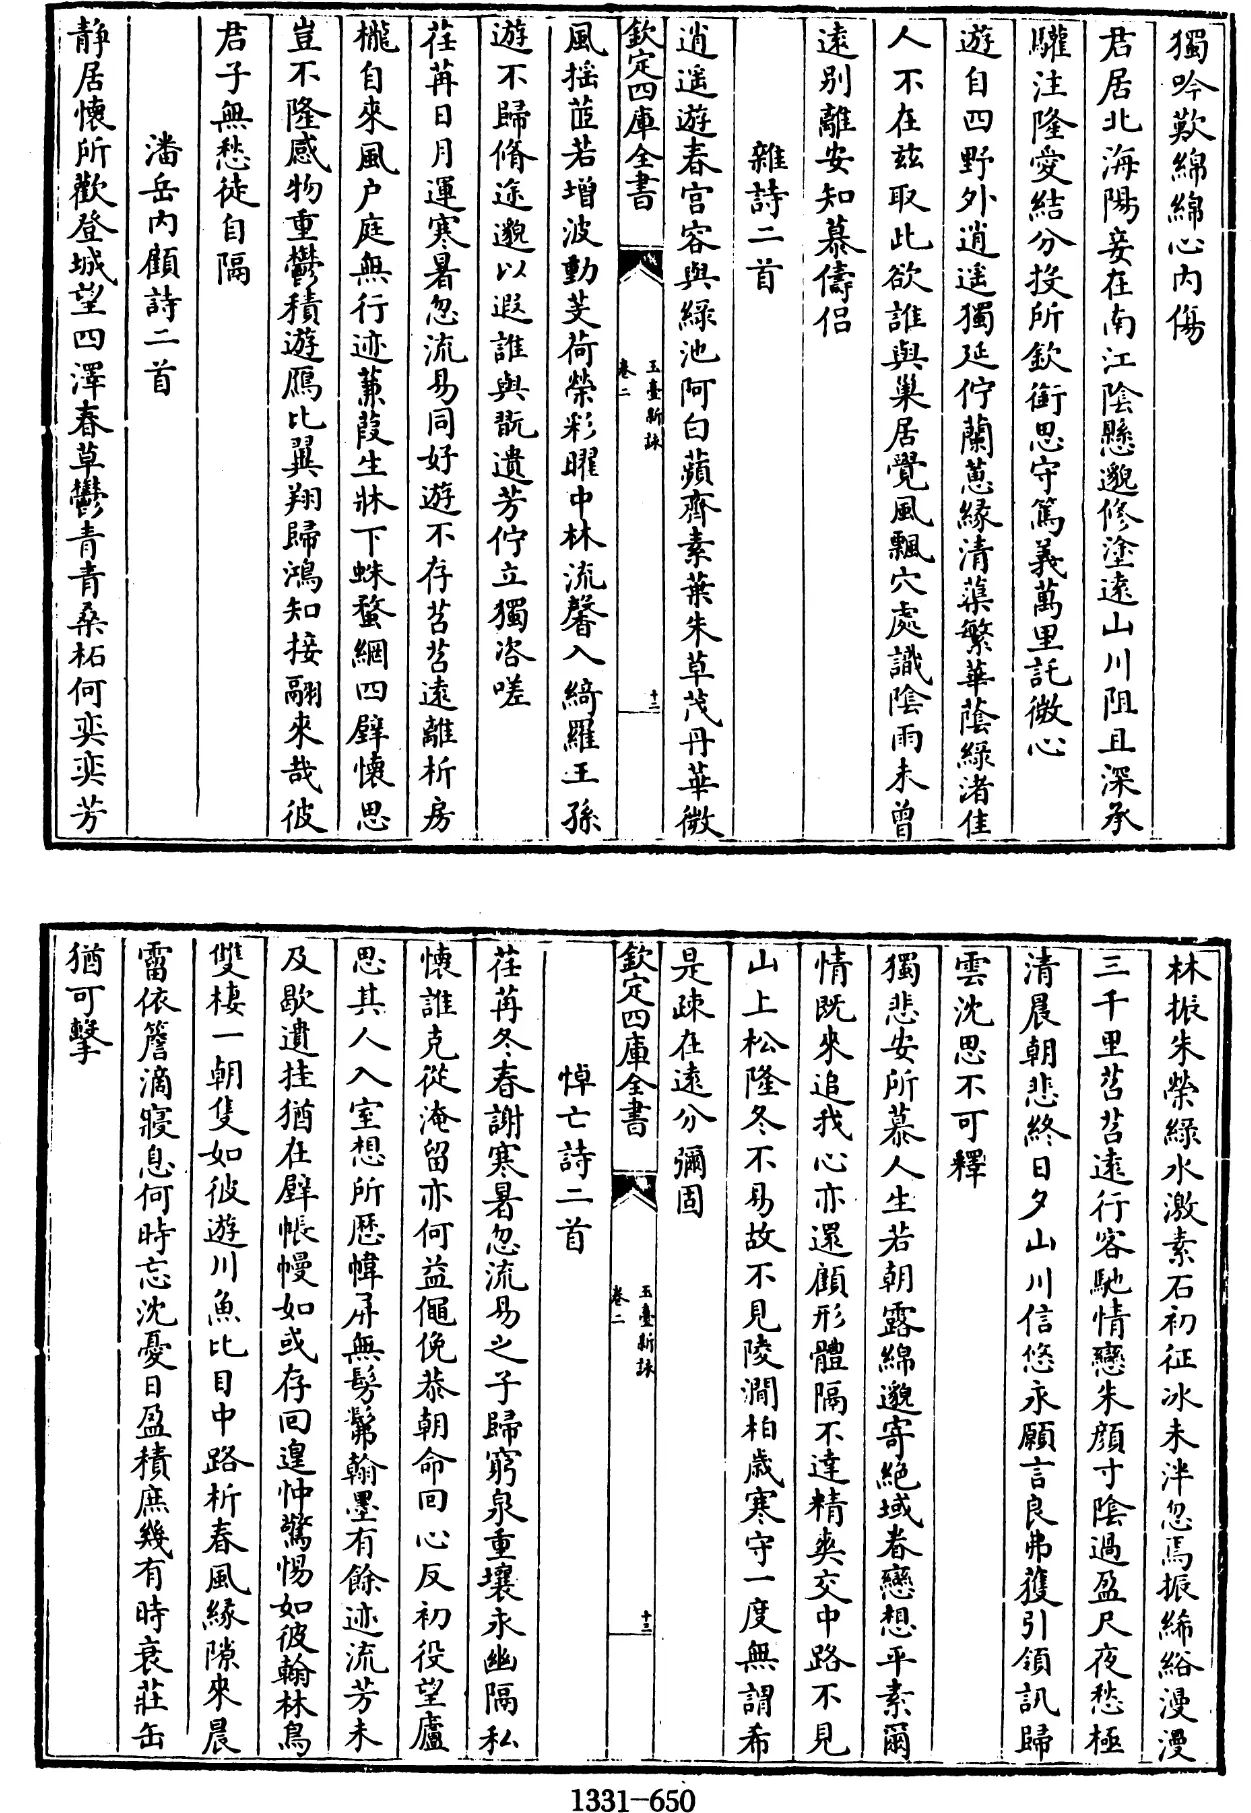 獨吟歎綿綿心内傷
君居北海陽妾在南江陰懸邈修塗遠山川阻且深承
驩注隆愛結分投所欽銜思守篤義萬里託微心
遊自四野外逍遥獨延佇蘭蕙緣清渠繁華蔭綠渚佳
人不在兹取此欲誰與巢居覺風飄穴處識陰雨未曾
遠别離安知慕儔侣
雜詩二首
逍遥遊春宫容與綠池阿白蘋齊素葉朱草茂丹華微
欽定四庫全書
玉臺新詠
卷二
十二
風揺茝若增波動芰荷榮彩曜中林流馨入綺羅王孫
遊不歸脩途邈以遐誰與翫遺芳佇立獨咨嗟
荏苒日月運寒暑忽流易同好遊不存苕苕遠離析房
櫳自來風户庭無行迹蒹葭生牀下蛛蝥網四壁懷思
豈不隆感物重鬱積遊鴈比翼翔歸鴻知接翮來哉彼
君子無愁徒自隔
潘岳内顧詩二首
静居懷所歡登城望四澤春草鬱青青桑柘何奕奕芳
林振朱榮綠水激素石初征冰未泮忽焉振絺綌漫漫
三千里苕苕遠行客馳情戀朱顔寸陰過盈尺夜愁極
清晨朝悲終日夕山川信悠永願言良弗獲引領訊歸
雲沈思不可釋
獨悲安所慕人生若朝露綿邈寄絶域眷戀想平素爾
情既來追我心亦還顧形體隔不達精爽交中路不見
山上松隆冬不易故不見陵澗柏歲寒守一度無謂希
是疎在遠分彌固
欽定四庫全書
玉臺新詠
卷二
十三
悼亡詩二首
荏苒冬春謝寒暑忽流易之子歸窮泉重壤永幽隔私
懷誰克從淹留亦何益僶俛恭朝命回心反初役望廬
思其人入室想所歴幃屏無髣髴翰墨有餘迹流芳未
及歇遺挂猶在壁帳幔如或存回遑忡驚惕如彼翰林鳥
雙棲一朝隻如彼遊川魚比目中路析春風緣隙來晨
霤依簷滴寢息何時忘沈憂日盈積庶幾有時衰莊缶
猶可擊
1331-650